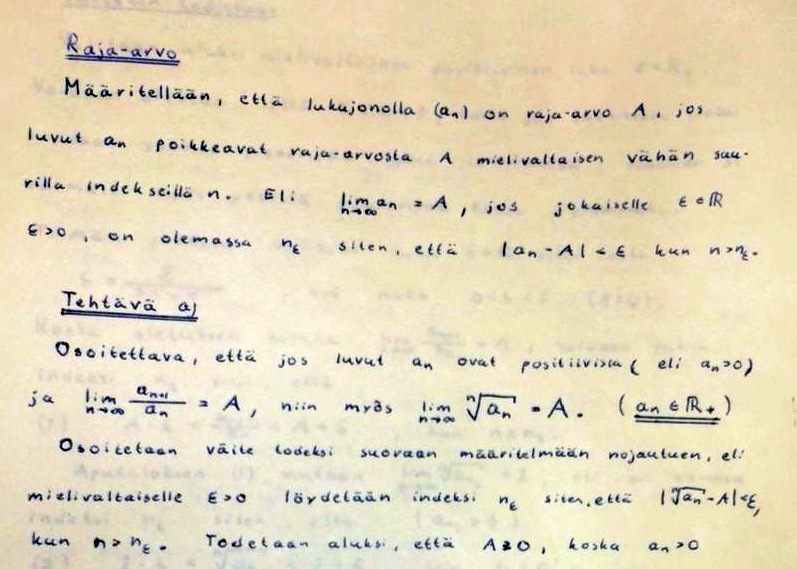 Raja-arvo
Määritellään, että lukujonolla (aₙ) on raja-arvo A, jos
luvut aₙ poikkeavat raja-arvosta A mielivaltaisen vähän suu-
rilla indekseillä n. Eli lim n→∞ aₙ = A, jos jokaiselle ε∈ℝ
ε>0, on olemassa n_ε siten, että |aₙ-A| < ε kun n>n_ε.
Tehtävä a)
Osoitettava, että jos luvut aₙ ovat positiivisia (eli aₙ>0)
ja lim n→∞ aₙ₊₁/aₙ = A, niin myös lim n→∞ ⁿ√aₙ = A. (aₙ ∈ ℝ₊)
Osoitetaan väite todeksi suoraan määritelmään nojautuen, eli
mielivaltaiselle ε>0 löydetään indeksi n_ε siten, että |ⁿ√aₙ-A|<ε,
kun n>n_ε. Todetaan aluksi, että A≥0, koska aₙ>0